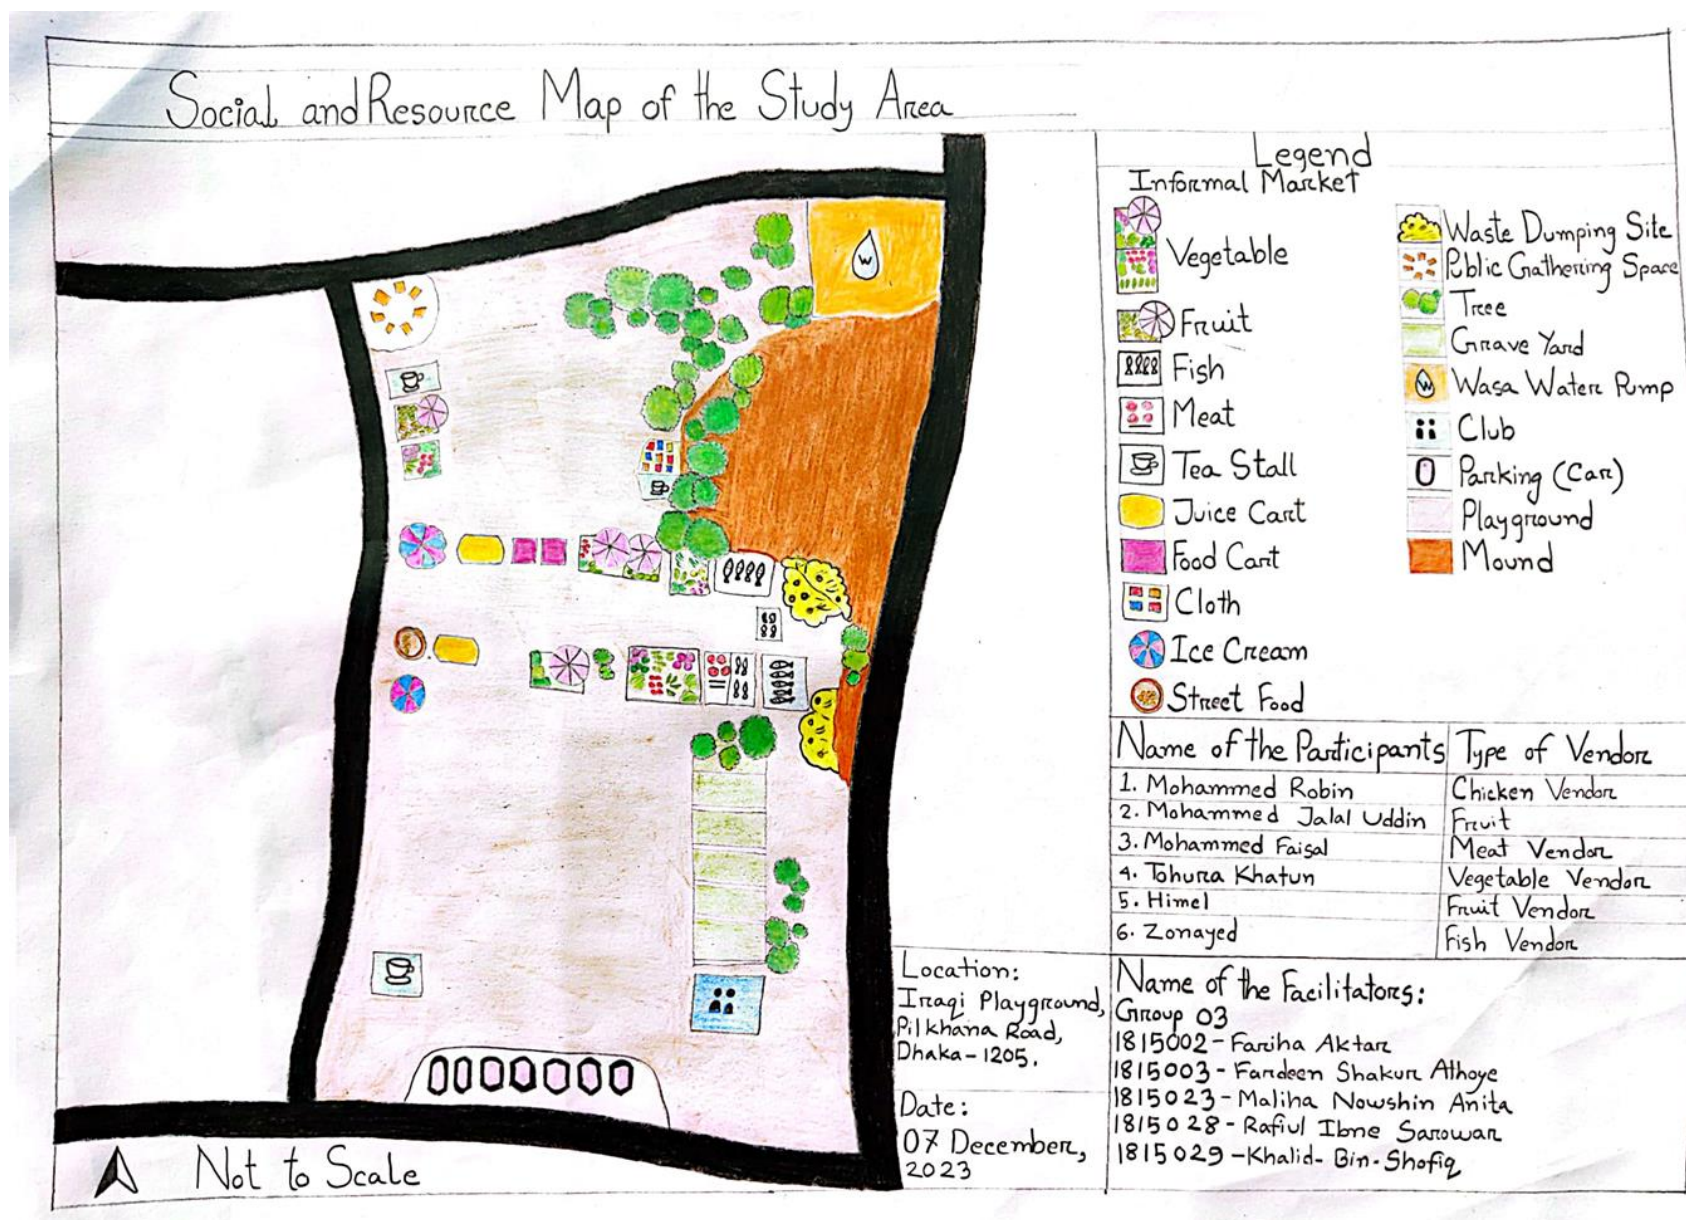 Social and Resource Map of the Study Area
Legend
Informal Market
Vegetable
Fruit
Fish
Meat
Tea Stall
Juice Cart
Food Cart
Cloth
Ice Cream
Street Food
Waste Dumping Site
Public Gathering Space
Tree
Grave Yard
Wasa Water Pump
Club
Parking (Car)
Playground
Mound
W
W
Name of the Participants Type of Vendor
1. Mohammed Robin Chicken Vendor
2. Mohammed Jalal Uddin Fruit
3. Mohammed Faisal Meat Vendor
4. Tohura Khatun Vegetable Vendor
5. Himel Fruit Vendor
6. Zonayed Fish Vendor
Location:
Iraqi Playground,
Pilkhana Road,
Dhaka-1205.
Date:
07 December,
2023
Name of the Facilitators:
Group 03
1815002-Fariha Aktar
1815003-Fardeen Shakur Athoye
1815023-Maliha Nowshin Anita
1815028-Rafiul Ibne Sarowar
1815029-Khalid-Bin-Shofiq
Not to Scale